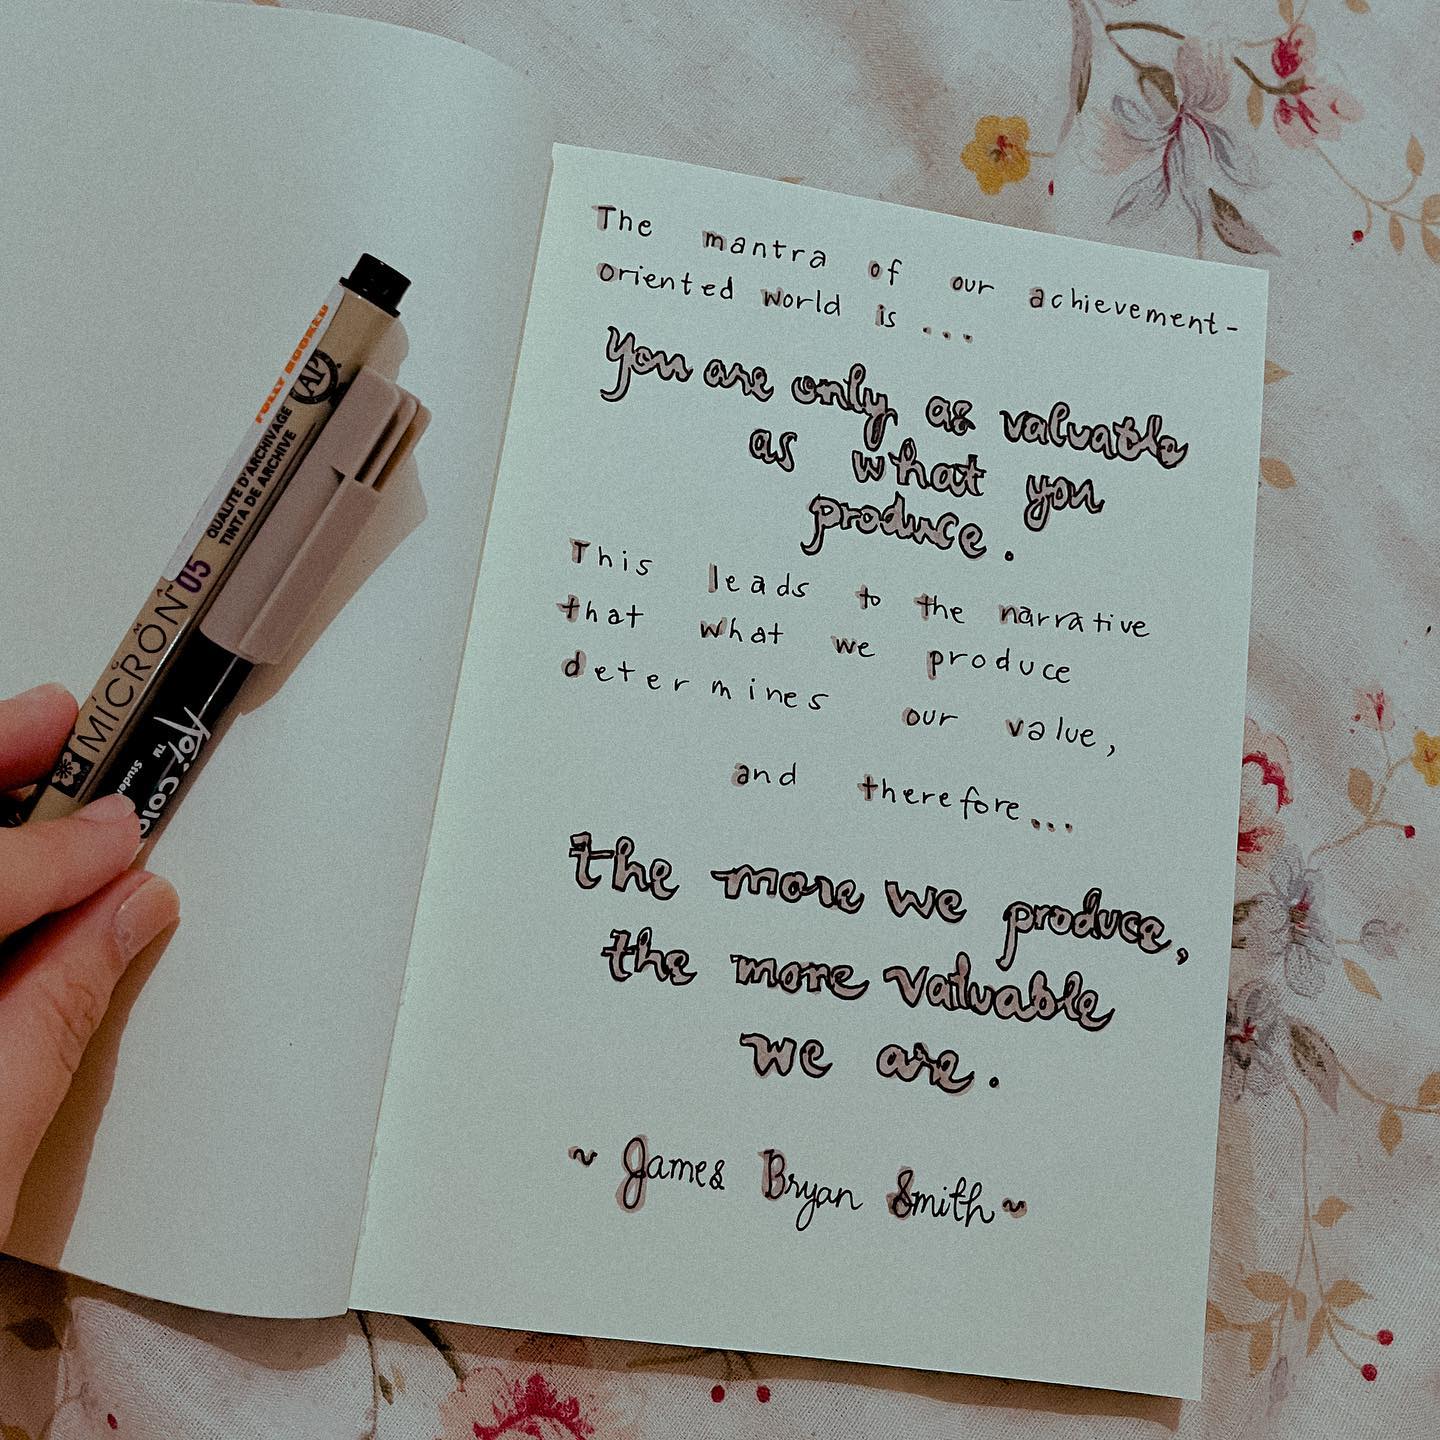 The mantra of our achievement-
oriented world is ...
you are only as valuable
as what you
produce.
This leads to the narrative
that what we produce
determines our value,
and therefore...
the more we produce,
the more valuable
we are.
~ James Bryan Smith ~
FULLY
AP
QUALITE D'ARCHIVAGE
TINTA DE ARCHIVE
MICRON™ 05
Koi
TM